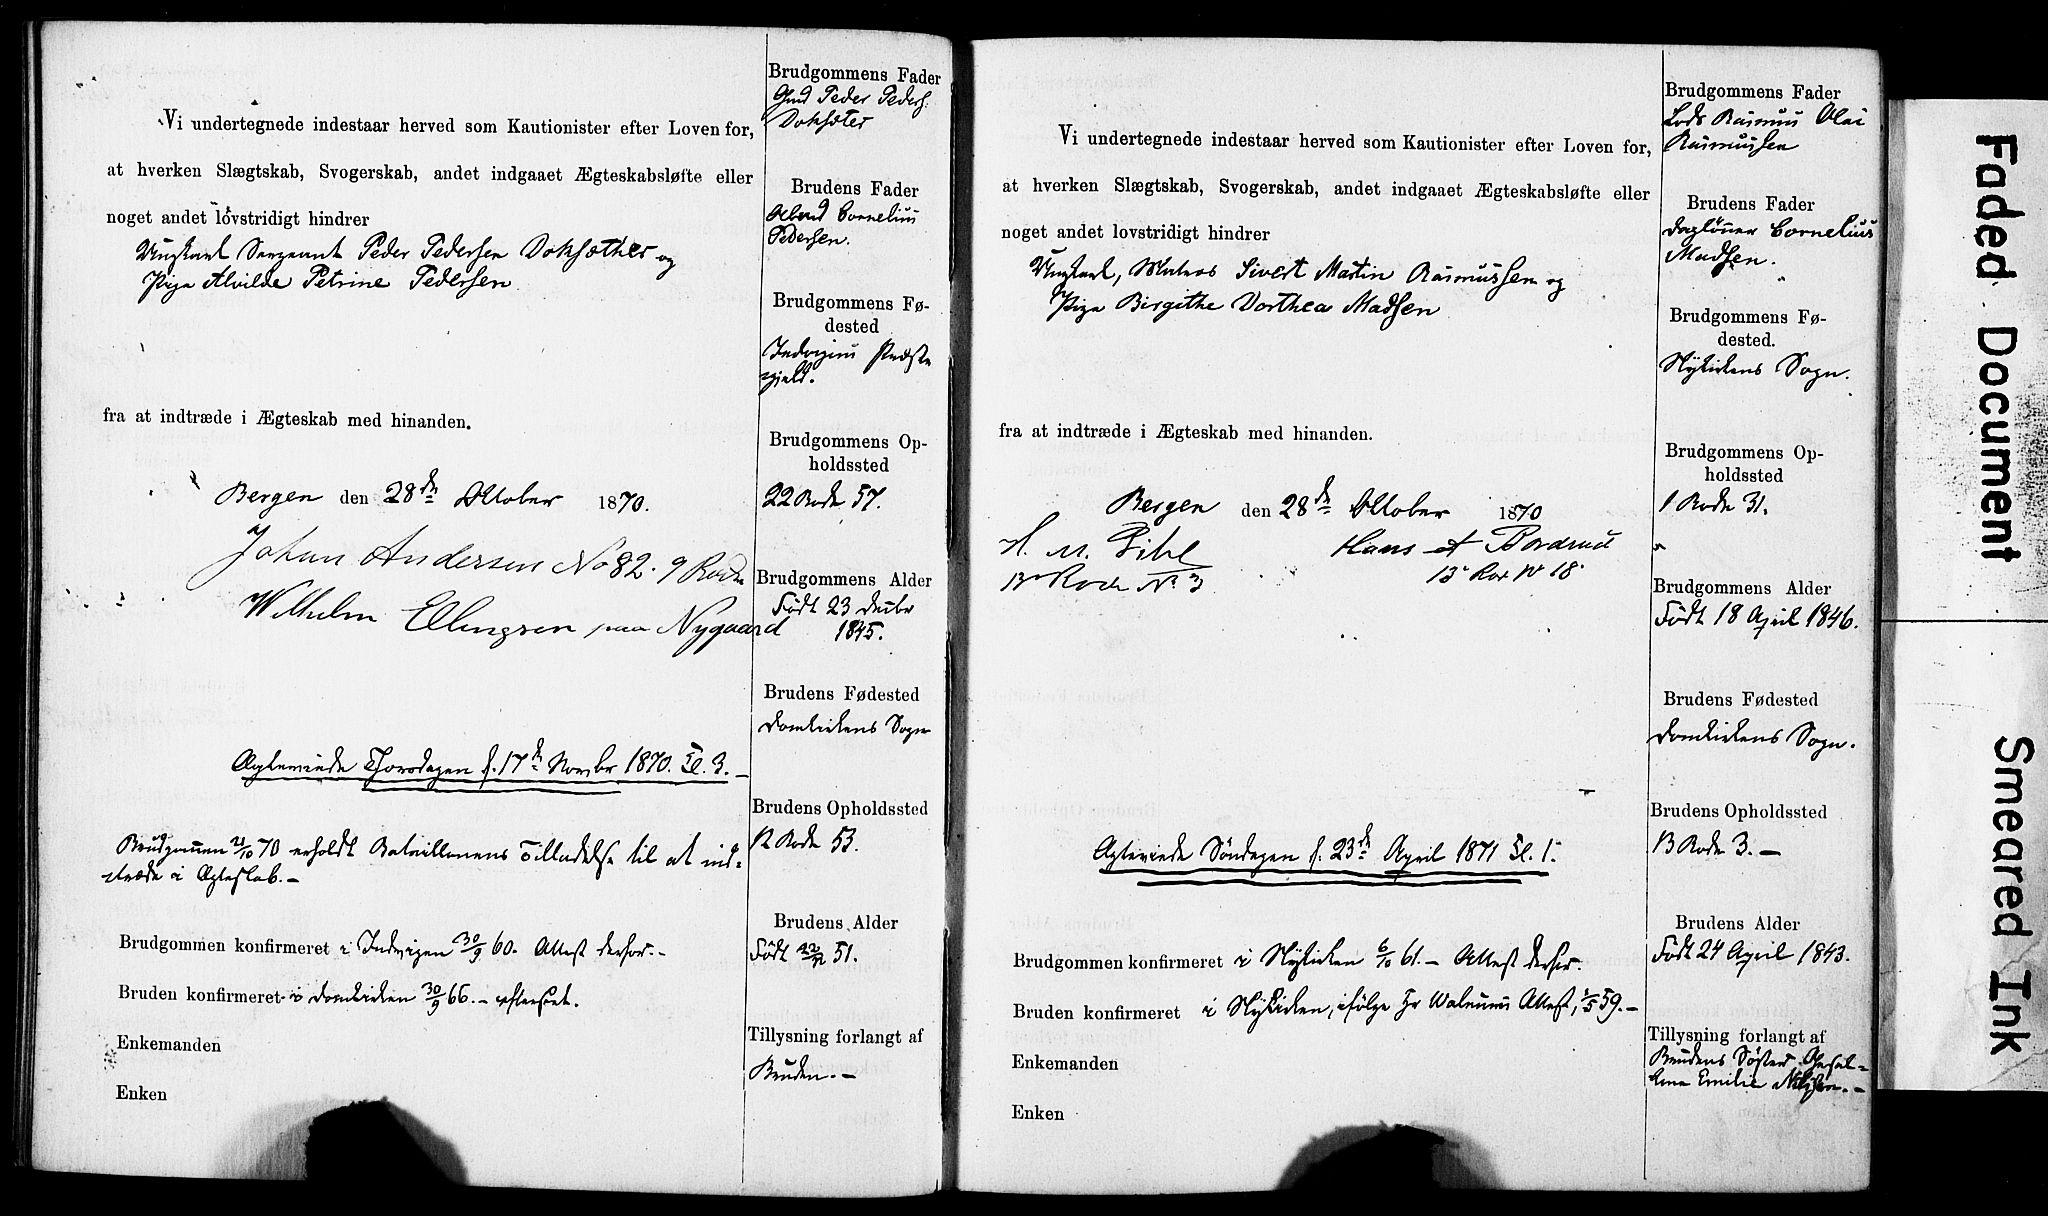 Vi undertegnede indestaar herved som Kautionister efter Loven for,
at hverken Slægtskab, Svogerskab, andet indgaaet Ægteskabsløfte eller
noget andet lovstridigt hindrer
Ungkarl Sergeant Peder Pedersen Doksæther og
Pige Alvilde Petrine Pedersen
fra at indtræde i Ægteskab med hinanden.
Bergen den 28de Oktober 1870.
Johan Andersen No 82. 9 Rode
Wilhelm Ellingsen paa Nygaard
Ægteviede Thorsdagen d. 17de Novbr 1870. Kl. 3. –
Brudgommen 21/10 70 erholdt Bataillonens Tilladelse til at ind-
træde i Ægteskab. –
Brudgommen konfirmeret i Indvigen 30/9 60. Attest derfor. –
Bruden konfirmeret i Domkirken 30/9 66. – efterseet.
Enkemanden
Enken
Brudgommens Fader
Gmd Peder Peders.
Doksæter
Brudens Fader
Cornelius
Pedersen.
Brudgommens Fø-
dested
Indvigens Præste
gjeld.
Brudgommens Op-
holdssted
22 Rode 57.
Brudgommens Alder
Født 23 Decbr
1845.
Brudens Fødested
Domkirkens Sogn
Brudens Opholdssted
12 Rode 53.
Brudens Alder
Født 51.
Tillysning forlangt af
Bruden. –
Vi undertegnede indestaar herved som Kautionister efter Loven for,
at hverken Slægtskab, Svogerskab, andet indgaaet Ægteskabsløfte eller
noget andet lovstridigt hindrer
Ungkarl, Matros Sivert Martin Rasmussen og
Pige Birgithe Dorthea Madsen
fra at indtræde i Ægteskab med hinanden.
Bergen den 28de Oktober 1870
H. M. Pihl Hans A Bordrud
13 Rode No 3 13 Rod No 18
Ægteviede Søndagen d. 23de April 1871 Kl. 1.
Brudgommen konfirmeret i Nykirken 6/10 61. – Attest derfor.
Bruden konfirmeret i Nykirken, ifølge Hr Walnums Attest, 1/5 59. –
Enkemanden
Enken
Brudgommens Fader
Lods Rasmus Olai
Rasmussen
Brudens Fader
Dagløner Cornelius
Madsen.
Brudgommens Fø-
dested.
Nykirkens Sogn.
Brudgommens Op-
holdssted
1 Rode 31.
Brudgommens Alder
Født 18 April 1846.
Brudens Fødested
Domkirkens Sogn.
Brudens Opholdssted
13 Rode 3. –
Brudens Alder
Født 24 April 1843.
Tillysning forlangt af
Brudens Søster
Emilie
Faded Document
Smeared Ink